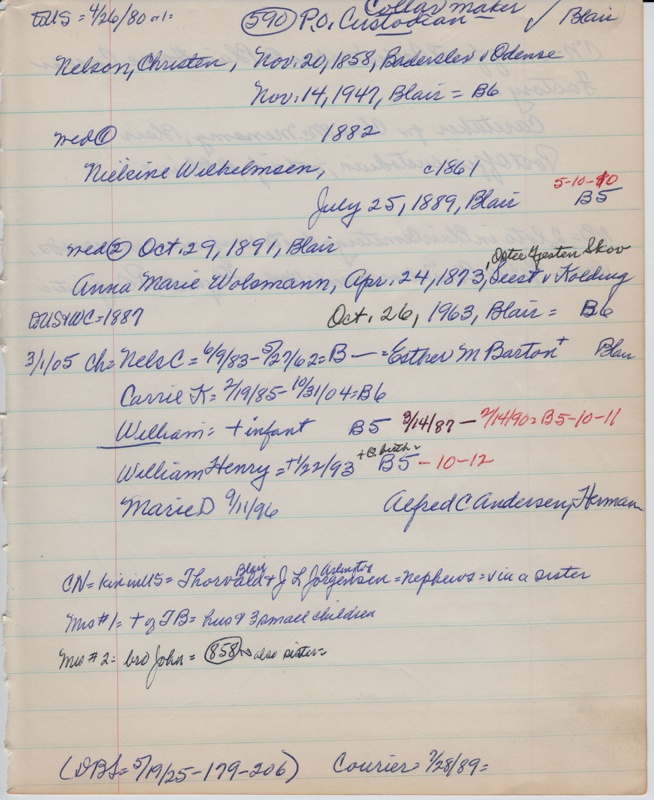 toUS = 4/26/80 or 1= (590) P.O. Custodian Collar maker ✓ Blair
Nelson, Christen, Nov. 20, 1858, Baderslev v Odense
Nov. 14, 1947, Blair = B6
med ① 1882
Nielsine Wilhelmsen, c1861
5-10-10
July 25, 1889, Blair B5
med ② Oct. 29, 1891, Blair
Østee Gesten Skov
Anna Marie Wolsmann, Apr. 24, 1873, Seest v Kolding
toUS+WC=1887 Oct. 26, 1963, Blair = B6
3/1/05 Ch = Nels C = 6/9/83 - 5/27/62 = B — = Esther M Barton + Blair
Carrie K = 2/19/85 - 10/31/04 = B6
William = + infant B5 3/14/87 - 2/14/90 = B5-10-11
William Henry = +1/22/93 +@ birth B5 - 10-12
Marie D 9/11/96 Alfred C Andersen, Herman
Blair Arlington
CN = kin in US = Thorvald & J L Jorgensen = nephews = via a sister
Mrs #1 = + of TB = hus & 3 small children
Mrs #2 = bro John = (858) also sister =
(DBS = 5/19/25 - 179-206) Courier = 7/28/89 =